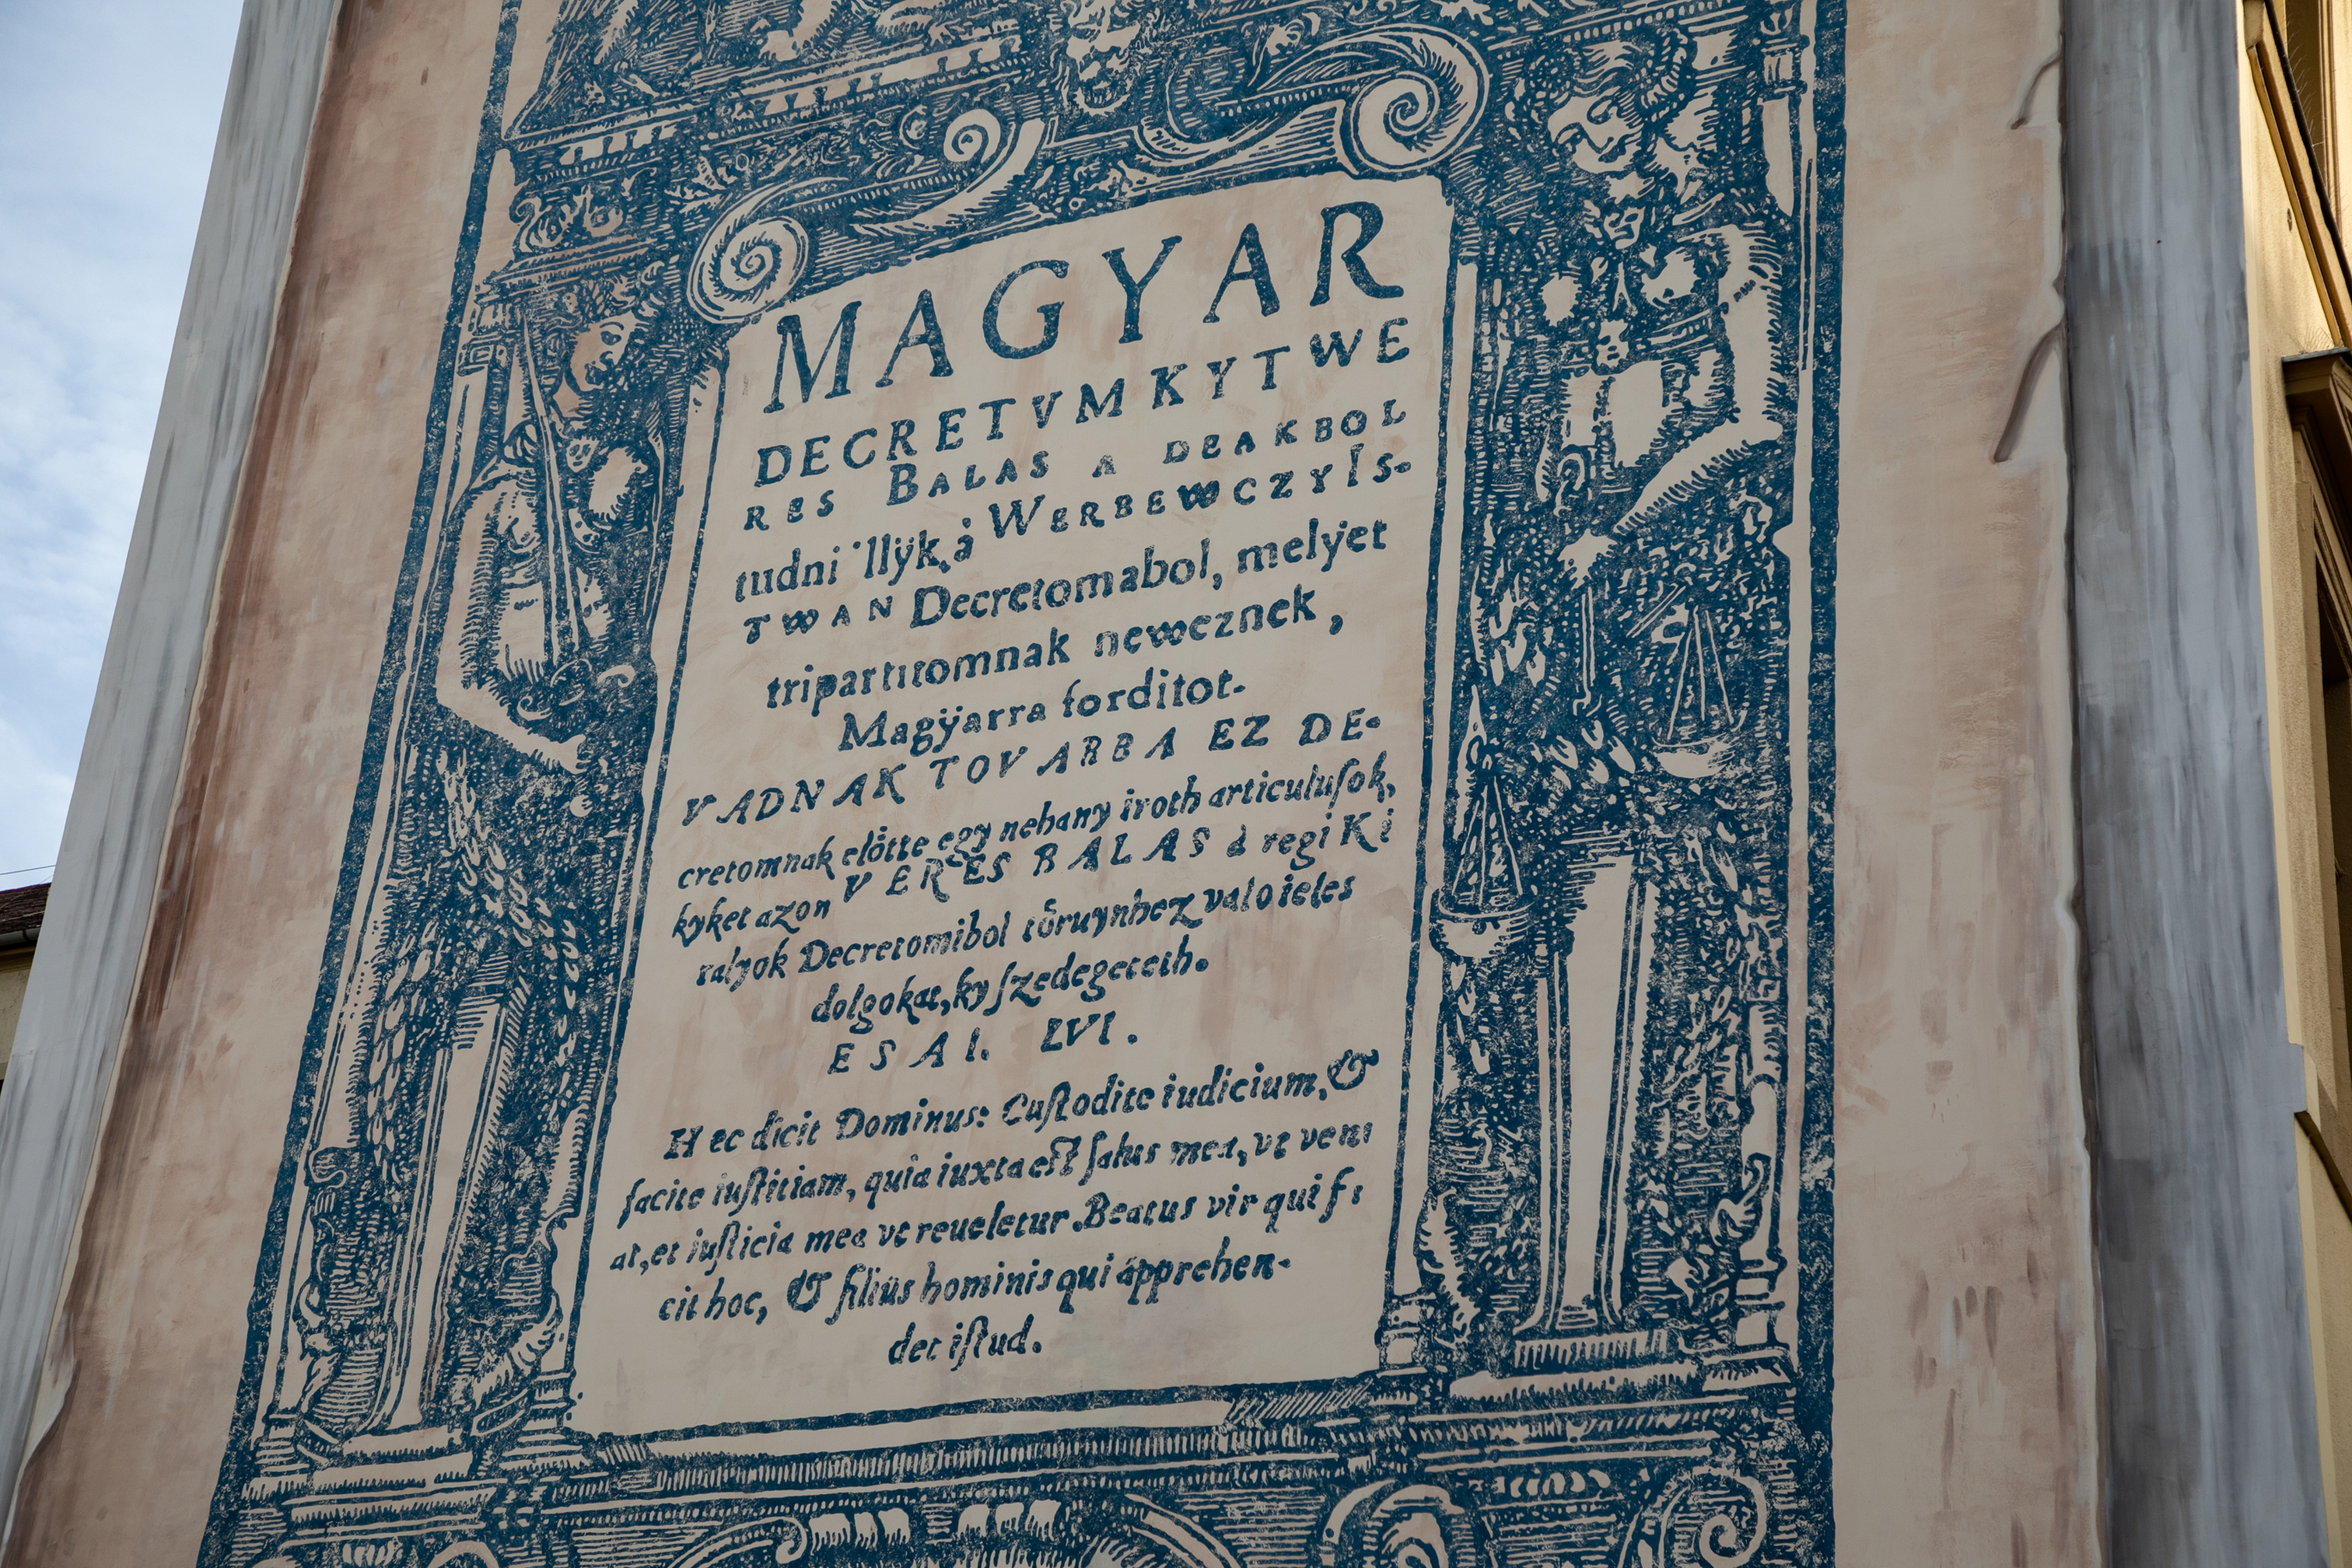 MAGYAR
DECRETVM KYT WE
RES BALAS A DEAKBOL
tudni 'llÿk, à WERBEWCZY IS-
TWAN Decretomabol, melyet
tripartitomnak neweznek,
Magÿarra forditot.
VADNAK TOVARBA EZ DE-
cretomnak elötte egy nehany iroth articulusok,
kyket azon VERES BALAS a regi Ki
ralyok Decretomibol töruynhez valo ieles
dolgokat, ky szedegeteth.
ESAI. LVI.
Hec dicit Dominus: Custodite iudicium, &
facite iustitiam, quia iuxta est salus mea, vt veni
at, et iusticia mea vt reueletur. Beatus vir qui f
cit hoc, & filius hominis qui apprehen-
det istud.